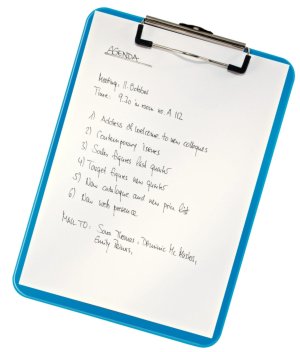 AGENDA
Meeting: 11 October
Time: 9.30 in room no. A 112
1) Address of welcome to new collegues
2) Contemporary issues
3) Sales figures last quarter
4) Target figures new quarter
5) New catalogue and new price list
6) New web presence
MAIL TO: Sara Thomas, Dominic Mc
Emily